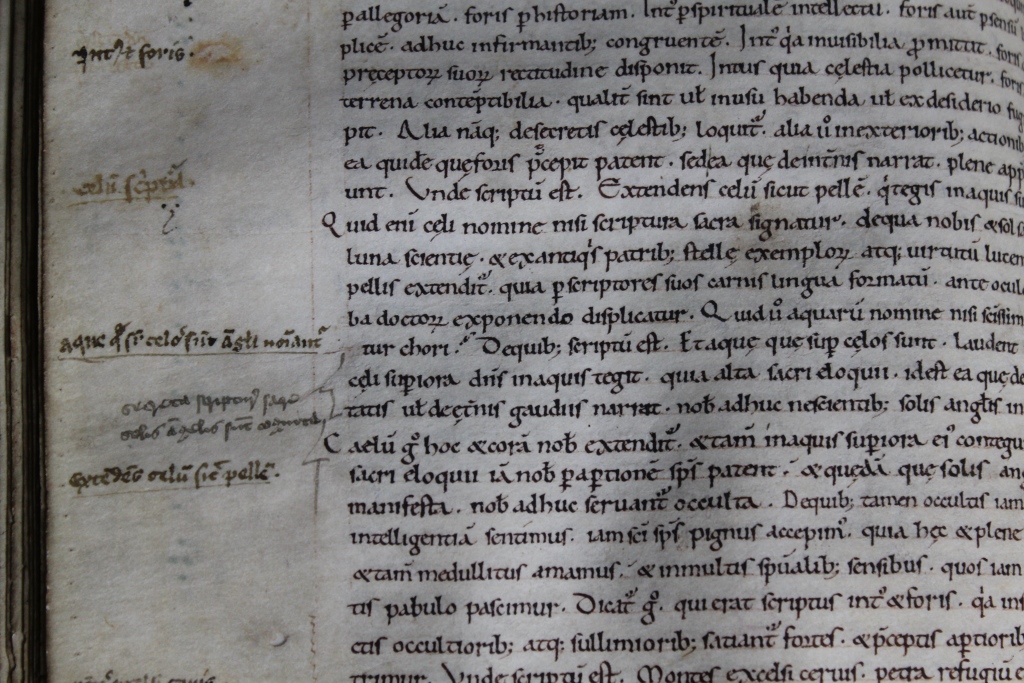 p allegoriā. foris p historiam. Int᷒ p spiritualē intellectū. foris aut̄ p sensū
plicē. adhuc infirmantib; congruentē. Int᷒ qͥa inuisibilia ꝓmittit. foris
pręceptoꝝ suoꝝ rectitudine disponit. Intus quia cęlestia pollicetur. foris
terrena contēptibilia. qualit̄ sint ut̄ in usu habenda ut̄ ex desiderio fug
pit. Alia nāq; de secretis cęlestib; loquit᷒. alia ů in exteriorib; actionib
ea quidē quę foris p̄cepit patent. sed ea quę de int̄nis narrat. plene app
unt. Vnde scriptū est. Extendens celū sicut pellē. qͥ tegis in aquis su
Quid eni̅ cęli nomine nisi scriptura sacra signatur. de qua nobis & sol s
luna scientię. & ex antiqͥs patrib; stellę exemploꝝ atq; uirtutū lucen
pellis extendit᷒. quia p scriptores suos carnis lingua formatū. ante ocul
ba doctoꝝ exponendo displicatur. Quid ů aquarū nomine nisi sc̄issim
tur chori. De quib; scriptū est. Et aquę quę sup cęlos sunt. laudent
cęli supiora dn̄s in aquis tegit. quia alta sacri eloquii. id est ea quę de
tatis ut̄ de ęt̄nis gaudiis narrat. nob̄ adhuc nescientib; solis angl̄is in
Caelū g̊ hoc & corā nob̄ extendit᷒. & tam̄ in aquis supiora ei᷒ contegu
sacri eloquii iā nob̄ p aptionē sp̄s patent. & quędā quę solis an
manifesta. nob̄ adhuc seruant᷒ occulta. De quib; tamen occultis iam
intelligentiā sentimus. iam sc̄i sp̄s pignus accepim᷒. quia hęc & plene
& tam̄ medullitus amamus. & in multis sp̄ualib; sensibus. quos iam
tis pabulo pascimur. Dicat᷒ g̊. qui erat scriptus int᷒ & foris. qͥa in
ctis occultiorib; atq; sullimiorib; satiant᷒ fortes. & p̄ceptis aptiorib
trimur. Vnde scriptū est. Montes excelsi ceruis. petra refugiū e
Int᷒ & foris.
celū sc̄ptū.
aque qͤ s̄t celos sūt āgl̄i noīant᷒
extēdēs celū sic̄ pellē.